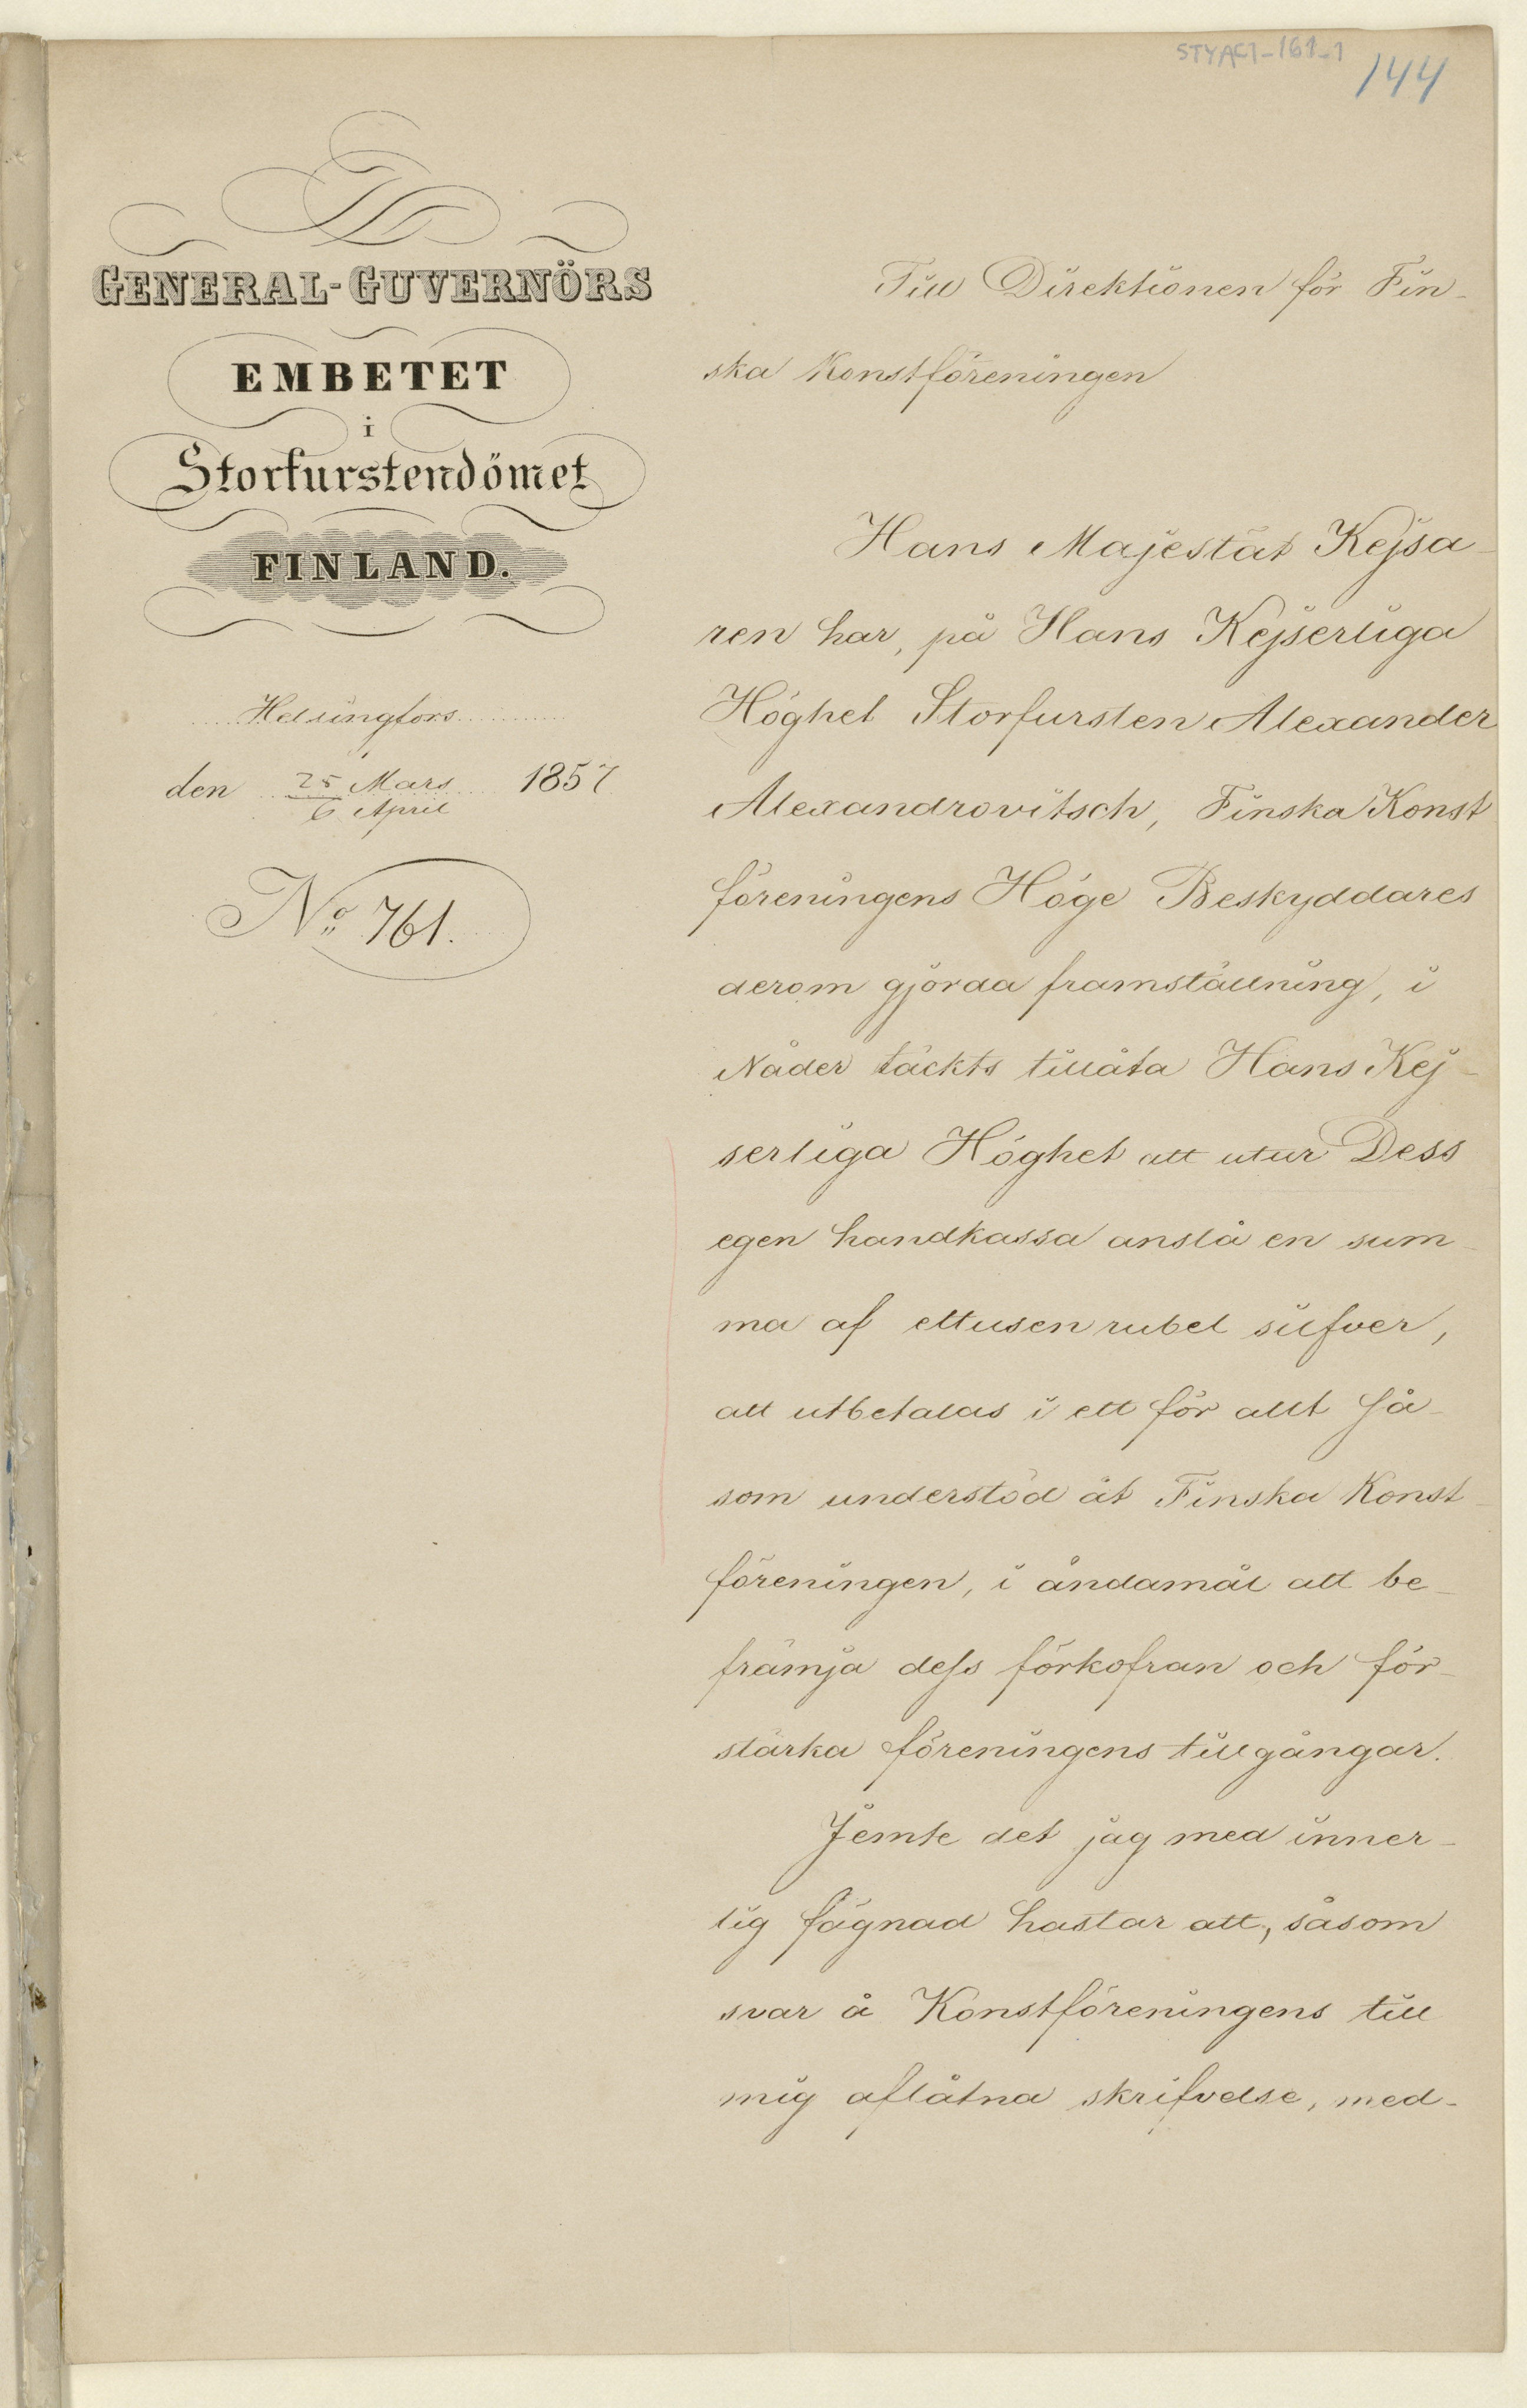 STYAC1-161-1
144
GENERAL-GUVERNÖRS
EMBETET
i
Storfurstendömet
FINLAND.
Helsingfors
den 25 Mars 1857
6 April
No 761.
Till Direktionen för Fin-
ska Konstföreningen
Hans Majestät Kejsa-
ren har, på Hans Kejserliga
Höghet Storfursten Alexander
Alexandrovitsch, Finska Konst
föreningens Höge Beskyddares
derom gjorda framställning, i
Nåder täckts tillåta Hans Kej-
serliga Höghet att utur Dess
egen handkassa anslå en sum-
ma af ettusen rubel silfver,
att utbetalas i ett för allt så-
som understöd åt Finska Konst-
föreningen, i ändamål att be-
främja dess förkofran och för-
stärka föreningens tillgångar.
Jemte det jag med inner-
lig fägnad hastar att, såsom
svar å Konstföreningens till
mig aflåtna skrifvelse, med-